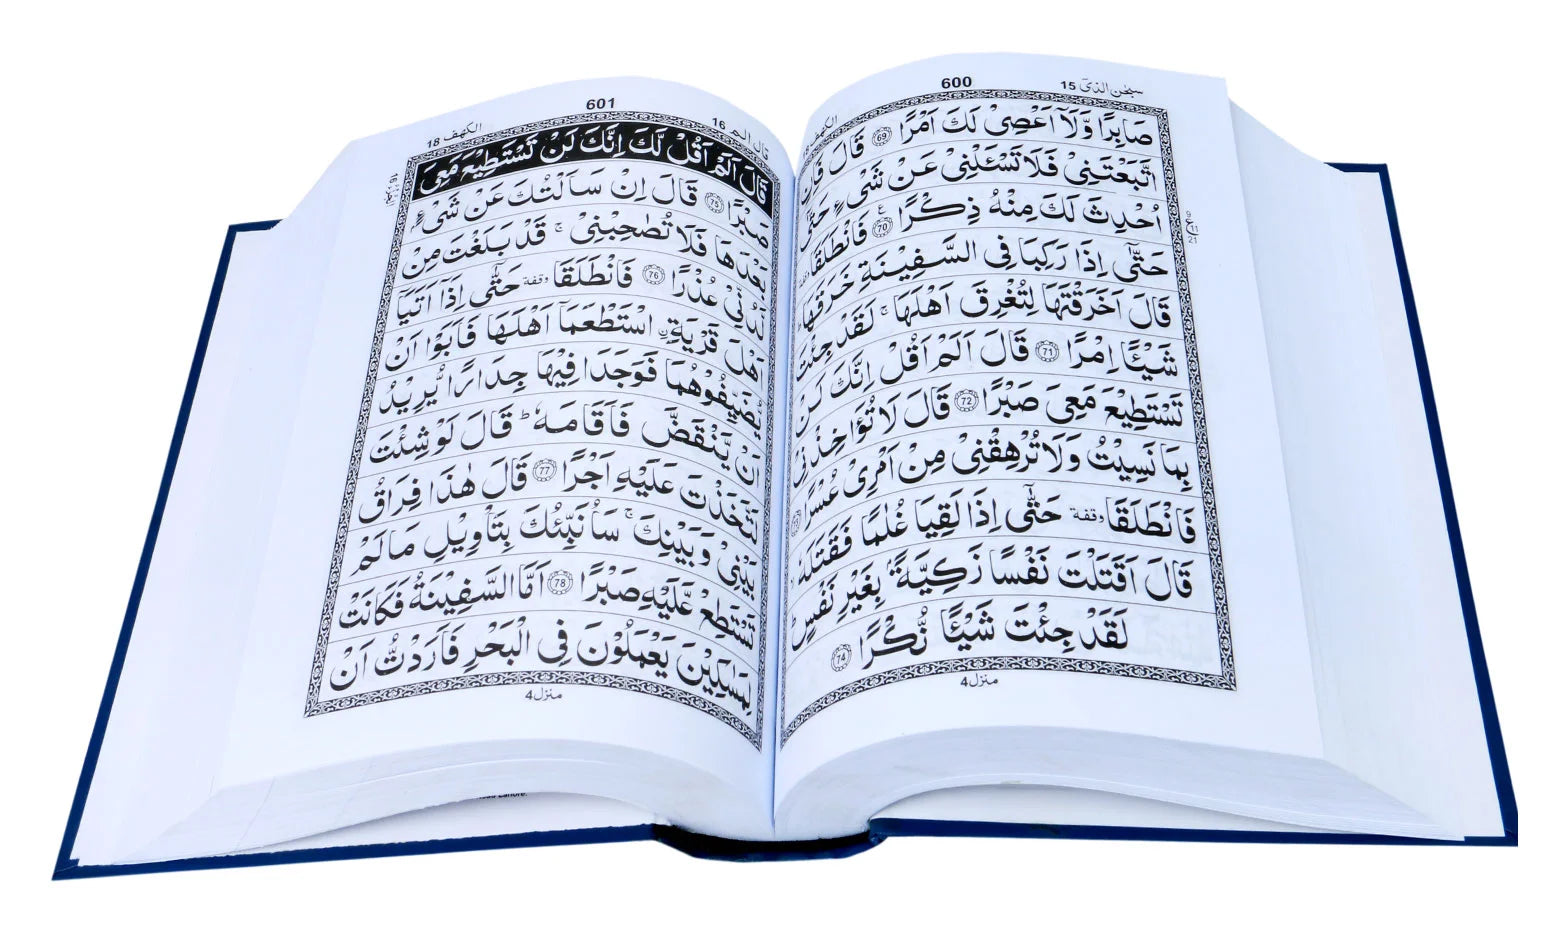 600
سبحٰن الذیٓ 15
الكهف 18
صَابِرًا وَّلَاۤ اَعْصِیْ لَكَ اَمْرًا ﴿69﴾ قَالَ فَاِنِ
اتَّبَعْتَنِیْ فَلَا تَسْـَٔلْنِیْ عَنْ شَیْءٍ حَتّٰۤی
اُحْدِثَ لَكَ مِنْهُ ذِكْرًا ﴿70﴾ ع فَانْطَلَقَا وقفة
حَتّٰۤی اِذَا رَكِبَا فِی السَّفِیْنَةِ خَرَقَهَا ؕ
قَالَ اَخَرَقْتَهَا لِتُغْرِقَ اَهْلَهَا ۚ لَقَدْ جِئْتَ
شَیْـًٔا اِمْرًا ﴿71﴾ قَالَ اَلَمْ اَقُلْ اِنَّكَ لَنْ
تَسْتَطِیْعَ مَعِیَ صَبْرًا ﴿72﴾ قَالَ لَا تُؤَاخِذْنِیْ
بِمَا نَسِیْتُ وَلَا تُرْهِقْنِیْ مِنْ اَمْرِیْ عُسْرًا ﴿73﴾
فَانْطَلَقَا وقفة حَتّٰۤی اِذَا لَقِیَا غُلٰمًا فَقَتَلَهٗ ۙ
قَالَ اَقَتَلْتَ نَفْسًا زَكِیَّةًۢ بِغَیْرِ نَفْسٍ ؕ
لَقَدْ جِئْتَ شَیْـًٔا نُّكْرًا ﴿74﴾
منزل 4
601
قال الم 16
الكهف 18
قَالَ اَلَمْ اَقُلْ لَّكَ اِنَّكَ لَنْ تَسْتَطِیْعَ مَعِیَ
صَبْرًا ﴿75﴾ قَالَ اِنْ سَاَلْتُكَ عَنْ شَیْءٍۭ
بَعْدَهَا فَلَا تُصٰحِبْنِیْ ۚ قَدْ بَلَغْتَ مِنْ
لَّدُنِّیْ عُذْرًا ﴿76﴾ فَانْطَلَقَا وقفة حَتّٰۤی اِذَاۤ اَتَیَاۤ
اَهْلَ قَرْیَةِ ِ۟اسْتَطْعَمَاۤ اَهْلَهَا فَاَبَوْا اَنْ
یُّضَیِّفُوْهُمَا فَوَجَدَا فِیْهَا جِدَارًا یُّرِیْدُ
اَنْ یَّنْقَضَّ فَاَقَامَهٗ ؕ قَالَ لَوْ شِئْتَ
لَتَّخَذْتَ عَلَیْهِ اَجْرًا ﴿77﴾ قَالَ هٰذَا فِرَاقُ
بَیْنِیْ وَبَیْنِكَ ۚ سَاُنَبِّئُكَ بِتَاْوِیْلِ مَا لَمْ
تَسْتَطِعْ عَّلَیْهِ صَبْرًا ﴿78﴾ اَمَّا السَّفِیْنَةُ فَكَانَتْ
لِمَسٰكِیْنَ یَعْمَلُوْنَ فِی الْبَحْرِ فَاَرَدْتُّ اَنْ
منزل 4